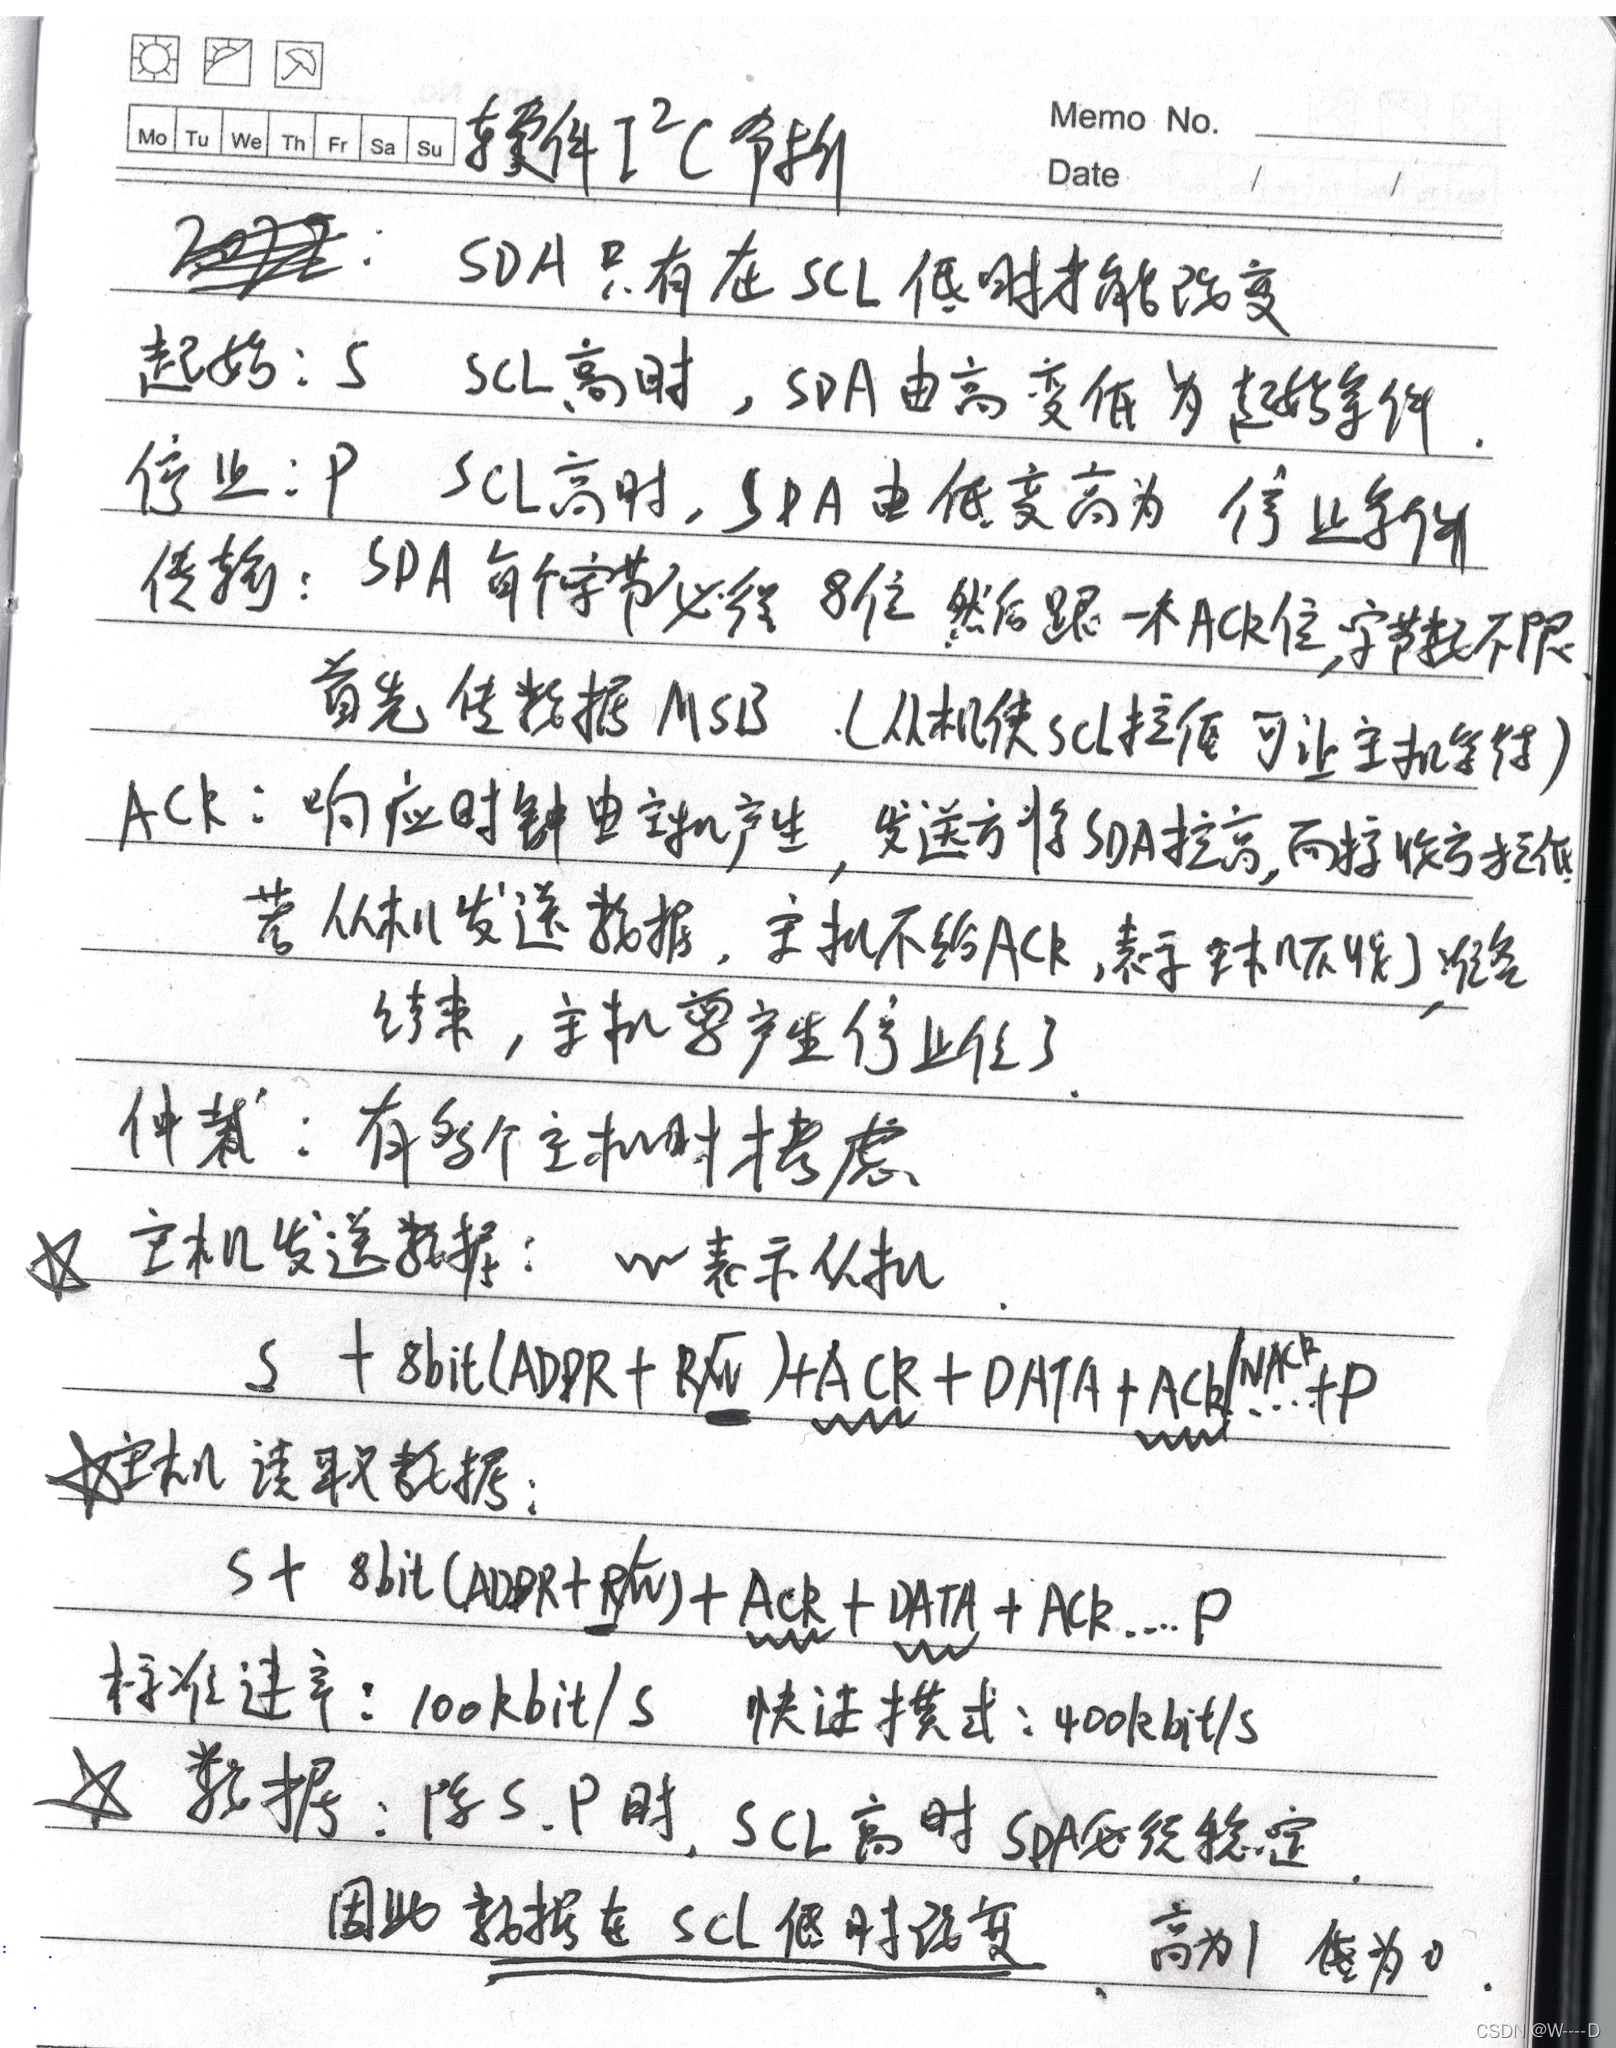 Mo Tu We Th Fr Sa Su
软件I²C解析
Memo No.
Date / /
: SDA 只有在 SCL 低时才能改变
起始: S SCL高时, SDA由高变低为起始条件.
停止: P SCL高时, SDA由低变高为 停止条件
传输: SDA 每个字节必须 8位 然后跟一个ACK位,字节数不限.
首先传数据MSB (从机使SCL拉低可让主机等待)
ACK: 响应时钟由主机产生, 发送方将SDA拉高,而接收方拉低
若从机发送数据, 主机不给ACK, 表示主机不收了,准备
结束, 主机要产生停止位了.
仲裁: 有多个主机时才考虑
☆ 主机发送数据: 〰表示从机.
S + 8bit(ADDR+R/W̅)+ACK+DATA+ACK/NACK....+P
☆主机读取数据:
S+ 8bit(ADDR+R/W̅)+ACK+DATA+ACK....P
标准速率: 100kbit/s 快速模式: 400kbit/s
☆ 数据: 除S.P时, SCL高时SDA必须稳定.
因此数据在SCL低时改变. 高为1 低为0.
CSDN @W----D